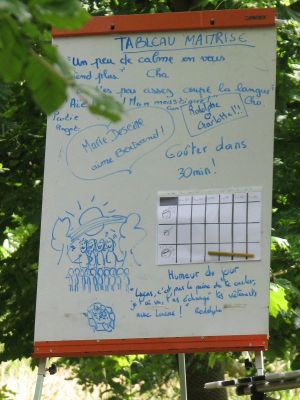 TABLEAU MAITRISE
"Un peu de calme on vous
end plus." Cha
n'es pas assez coupé la langue"
Cho
Rodolphe
Charlotte!!
Marie
aime Bertrand!
Goûter dans
30min!
Humeur du jour
"Lucas, c'est pas la peine de te cacher,
je t'ai vu, t'as échangé tes vêtements
avec Lucine!" Rodolphe